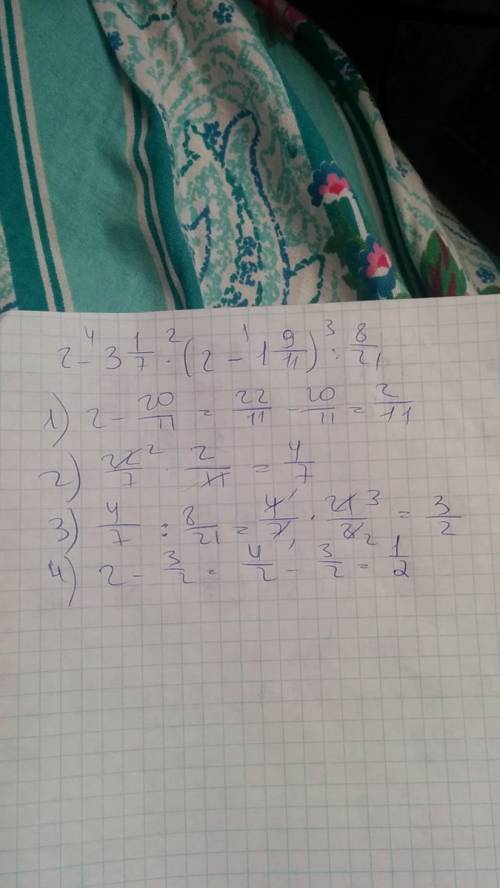 2 - 3 1/7 · (2 - 1 9/11) : 8/21
1) 2 - 20/11 = 22/11 - 20/11 = 2/11
2) 22/7 · 2/11 = 4/7
3) 4/7 : 8/21 = 4/7 · 21/8 = 3/2
4) 2 - 3/2 = 4/2 - 3/2 = 1/2